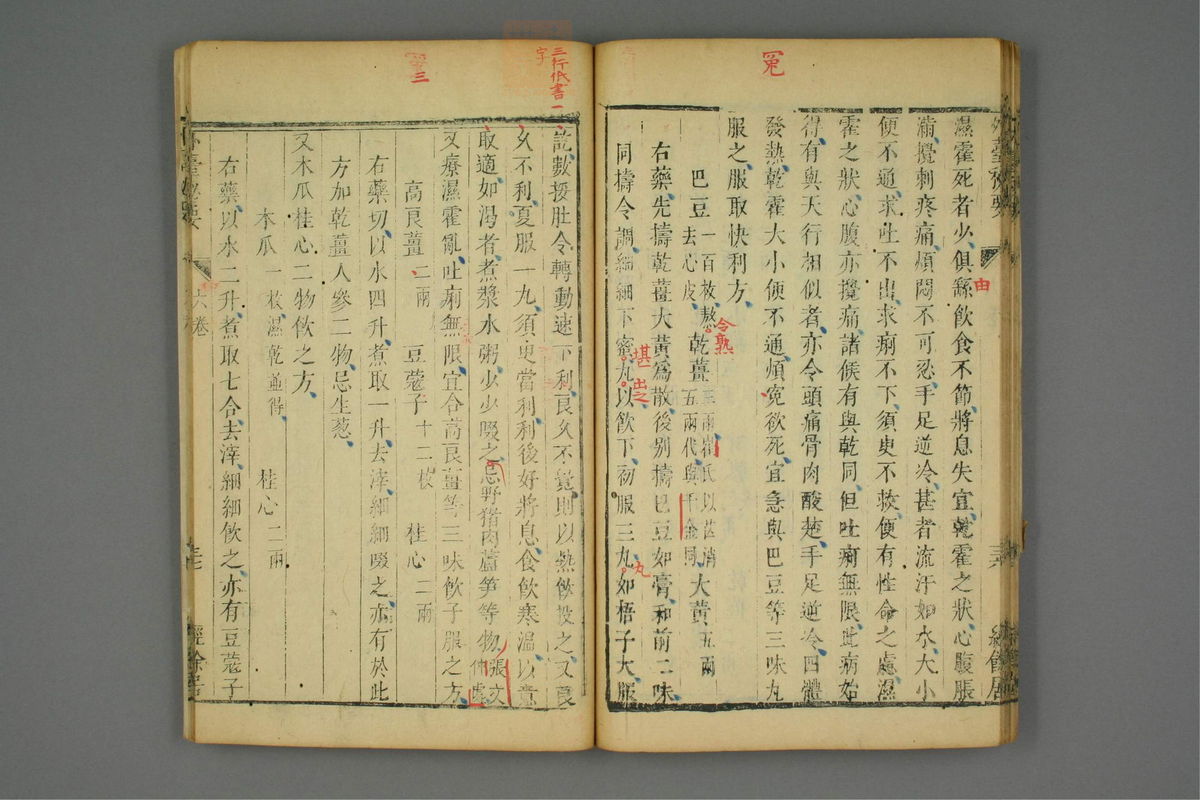 冤
由
外臺祕要
三六
經餘居
濕霍死者少俱繇飲食不節將息失宜乾霍之狀心腹脹
滿攪刺疼痛煩悶不可忍手足逆冷甚者流汗如水大小
便不通求吐不出求痢不下須臾不救便有性命之慮濕
霍之狀心腹亦攪痛諸候有與乾同但吐痢無限此病始
得有與天行相似者亦令頭痛骨肉酸楚手足逆冷四體
發熱乾霍大小便不通煩寃欲死宜急與巴豆等三味丸
服之服取快利方
巴豆一百枚熬去心皮 乾薑三兩崔氏以芒消五兩代與千金同 大黃五兩
令熟
右藥先擣乾薑大黃為散後別擣巴豆如膏和前二味
同擣令調細細下蜜丸以飲下初服三丸如梧子大服
堪出之
丸
三行低書一
字
三
訖數援肚令轉動速下利良久不覺則以熱飲投之又良
久不利夏服一丸須臾當利利後好將息食飲寒溫以意
取適如渴者煮漿水粥少少啜之忌野猪肉蘆笋等物張文仲處
又療濕霍亂吐痢無限宜合高良薑等三味飲子服之方
高良薑二兩 豆蔻子十二枚 桂心二兩
右藥切以水四升煮取一升去滓細細啜之亦有於此
方加乾薑人參二物忌生葱
又木瓜桂心二物飲之方
木瓜一枚濕乾並得 桂心二兩
右藥以水二升煮取七合去滓細細飲之亦有豆蔻子
外臺祕要
六卷
三七
經餘居